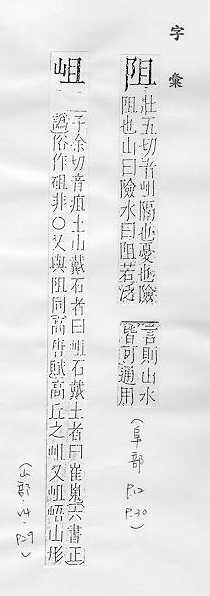 字彙
阻
壯五切音岨隔也憂也險
阻也山曰險水曰阻若泛
言則山水
皆可通用
(阜部 P.12 P.30)
岨
子余切音疽土山戴石者曰岨石戴土者曰崔嵬六書正
譌俗作砠非○又與阻同高唐賦高丘之岨又岨峿山形
(山部.14 P.29)